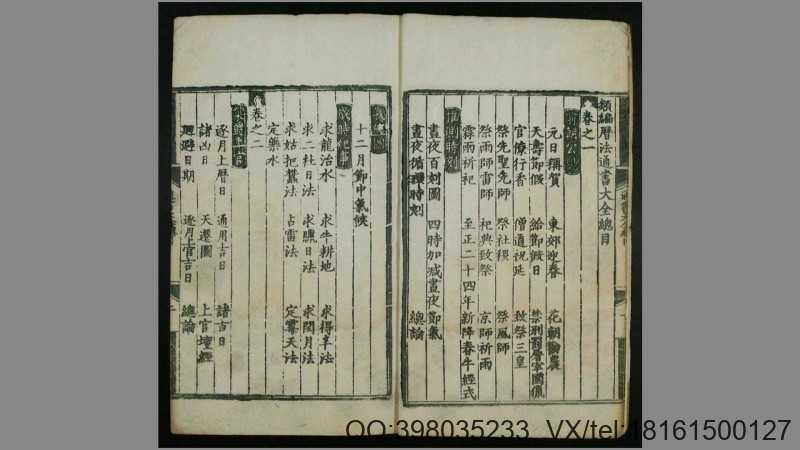 類編曆法通書大全總目
卷之一
元日稱賀 東郊迎春 花朝勸農
天壽節假 給節假日
官僚行香 僧道祝延 致祭三皇
祭先聖先師 祭社稷 祭風師
祭雨師雷師 祀典致祭 京師祈雨
霖雨祈祀 至正二十四年新降春牛經式
晝夜百刻圖 四時加減晝夜節氣
晝夜循環時刻 總論
十二月節中氣候
求龍治水 求牛耕地 求得辛法
求二社日法 求臘日法 求閏月法
求姑把蠶法 占雷法 定霉天法
定藥水
卷之二
逐月上曆日 通用吉日 諸吉日
諸凶日 天遷圖 上官壇經
迴避日期 逐月上官吉日 總論
QQ:398035233 VX/tel:18161500127